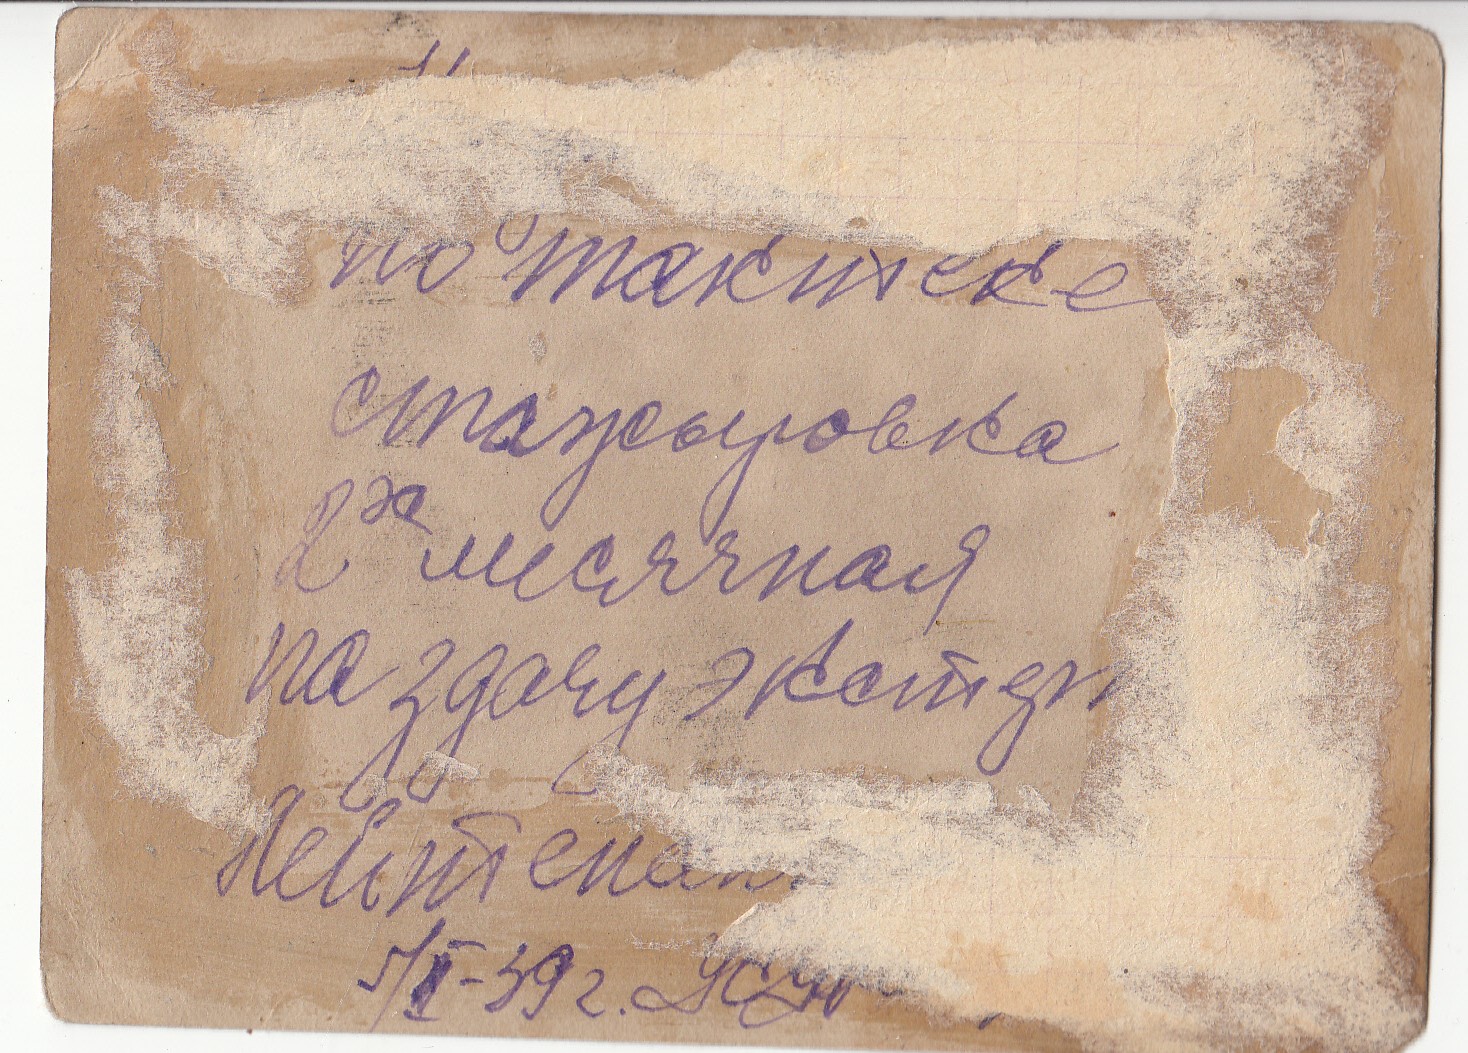 по тактеке
стажыровка
2х месячная
на здачу экстер
Лейтенан
5/II-39 г.